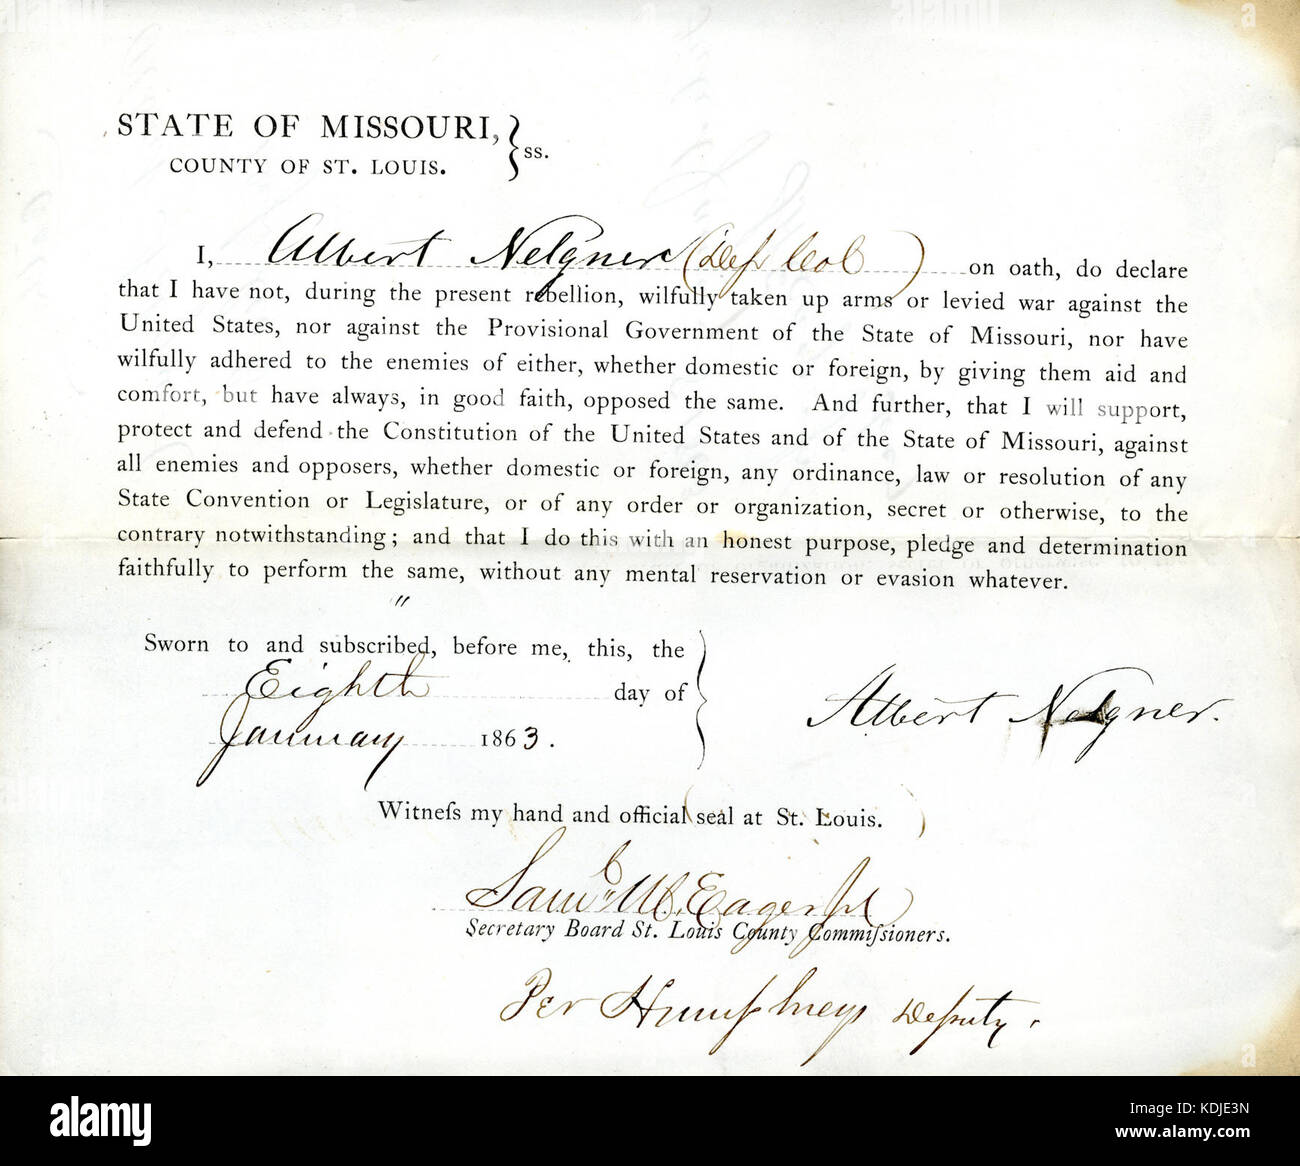 STATE OF MISSOURI, } ss.
COUNTY OF ST. LOUIS.
I, Albert Nelgner (Dep Col) on oath, do declare
that I have not, during the present rebellion, wilfully taken up arms or levied war against the
United States, nor against the Provisional Government of the State of Missouri, nor have
wilfully adhered to the enemies of either, whether domestic or foreign, by giving them aid and
comfort, but have always, in good faith, opposed the same. And further, that I will support,
protect and defend the Constitution of the United States and of the State of Missouri, against
all enemies and opposers, whether domestic or foreign, any ordinance, law or resolution of any
State Convention or Legislature, or of any order or organization, secret or otherwise, to the
contrary notwithstanding; and that I do this with an honest purpose, pledge and determination
faithfully to perform the same, without any mental reservation or evasion whatever.
Sworn to and subscribed, before me, this, the
Eighth day of
January 1863.
Albert Nelgner.
Witneſs my hand and official (seal at St. Louis. )
Saml. M. Eager Jr
Secretary Board St. Louis County Commiſsioners.
Per Humphreys Deputy.
alamy
Image ID: KDJE3N
www.alamy.com